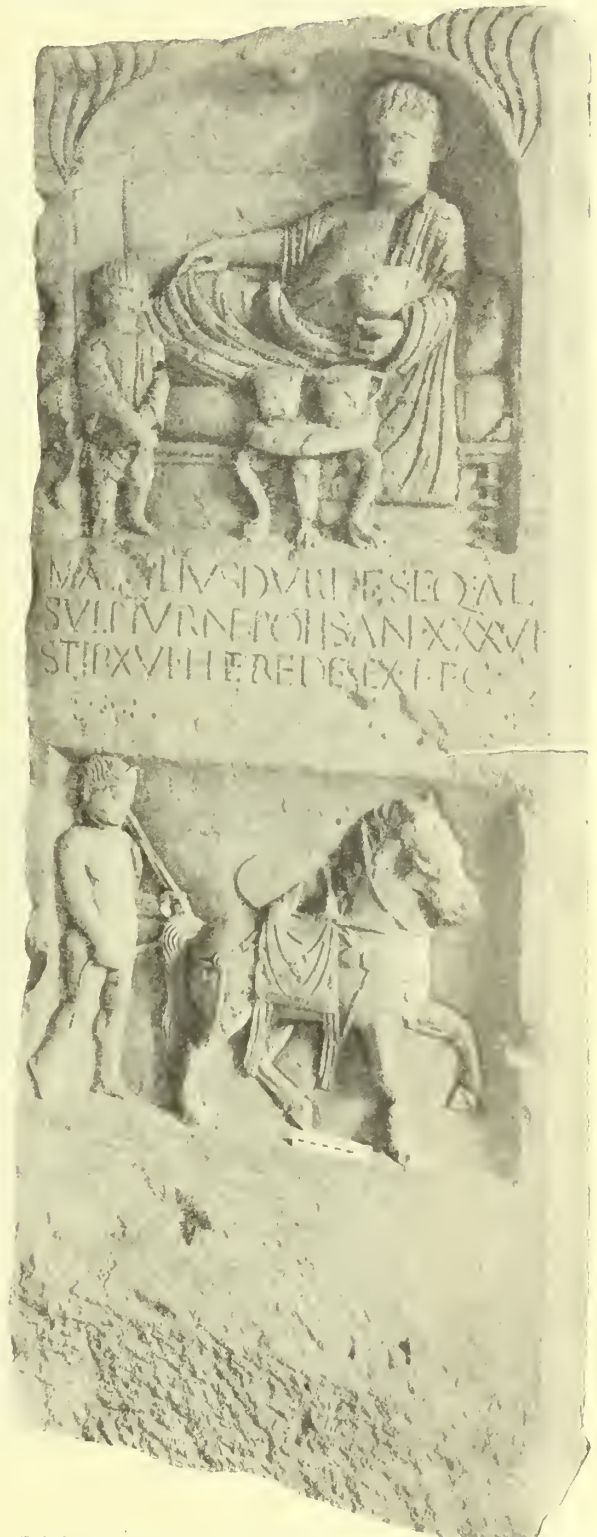 MARCILIVS·DVRI·F·SEQ·AL
SVLP·TVR·NEPOTIS·AN·XXXVI
STIP·XVI·HEREDES·EX·T·F·C